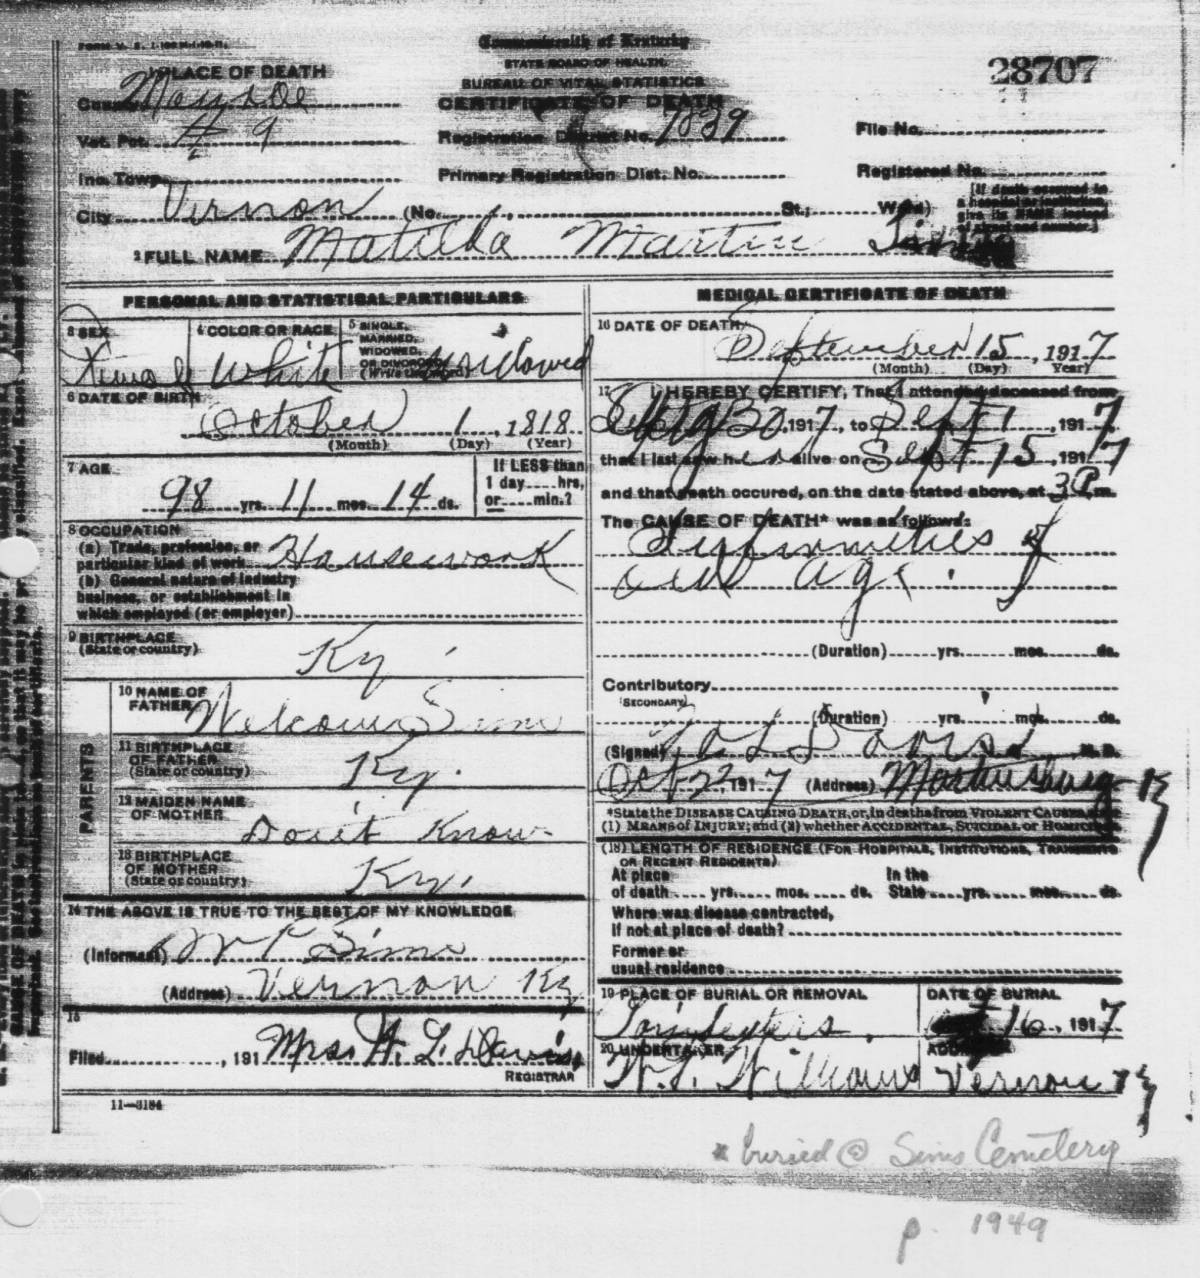 FORM V. S. 1-
Commonwealth of Kentucky
STATE BOARD OF HEALTH.
BUREAU OF VITAL STATISTICS
CERTIFICATE OF DEATH
28707
1 PLACE OF DEATH
County Monroe
Vot. Pct. # 9
Registration District No. 7839
File No.
Inc. Town
Primary Registration Dist. No.
Registered No.
City Vernon (No. , St.; Ward)
[If death occurred in a hospital or institution, give its NAME instead of street and number.]
2 FULL NAME Matilda Martin Sims
PERSONAL AND STATISTICAL PARTICULARS
3 SEX Female
4 COLOR OR RACE White
5 SINGLE, MARRIED, WIDOWED, OR DIVORCED (Write the word) Widowed
6 DATE OF BIRTH October 1, 1818
(Month) (Day) (Year)
7 AGE 98 yrs. 11 mos. 14 ds.
If LESS than 1 day hrs, or min.?
8 OCCUPATION
(a) Trade, profession, or particular kind of work Housework
(b) General nature of industry business, or establishment in which employed (or employer)
9 BIRTHPLACE (State or country) Ky.
PARENTS
10 NAME OF FATHER Welcome Sims
11 BIRTHPLACE OF FATHER (State or country) Ky.
12 MAIDEN NAME OF MOTHER Don't Know
13 BIRTHPLACE OF MOTHER (State or country) Ky.
14 THE ABOVE IS TRUE TO THE BEST OF MY KNOWLEDGE
(Informant) Sims
(Address) Vernon Ky
15 Filed , 191 Mrs. H. L. Davis,
REGISTRAR
MEDICAL CERTIFICATE OF DEATH
16 DATE OF DEATH September 15, 1917
(Month) (Day) Year)
17 I HEREBY CERTIFY, That I attended deceased from
30, 1917, to Sept 1, 1917
that I last saw her alive on Sept 15, 1917
and that death occured, on the date stated above, at 3 P.m.
The CAUSE OF DEATH* was as follows:
Infirmities of
old age.
(Duration) yrs. mos. ds.
Contributory
(SECONDARY)
(Duration) yrs. mos. ds.
(Signed) Davis M. D.
Oct 22, 1917 (Address) Martinsburg Ky
*State the DISEASE CAUSING DEATH, or, in deaths from VIOLENT CAUSES, state
(1) MEANS of INJURY; and (2) whether ACCIDENTAL, SUICIDAL or HOMICIDAL
(18) LENGTH OF RESIDENCE (FOR HOSPITALS, INSTITUTIONS, TRANSIENTS OR RECENT RESIDENTS)
At place of death yrs. mos. ds. In the State yrs. mos. ds.
Where was disease contracted,
If not at place of death?
Former or
usual residence
19 PLACE OF BURIAL OR REMOVAL
DATE OF BURIAL
16, 1917
20 UNDERTAKER
ADDRESS
Williams Vernon Ky
11—3184
* buried @ Sims Cemetery
p. 1949